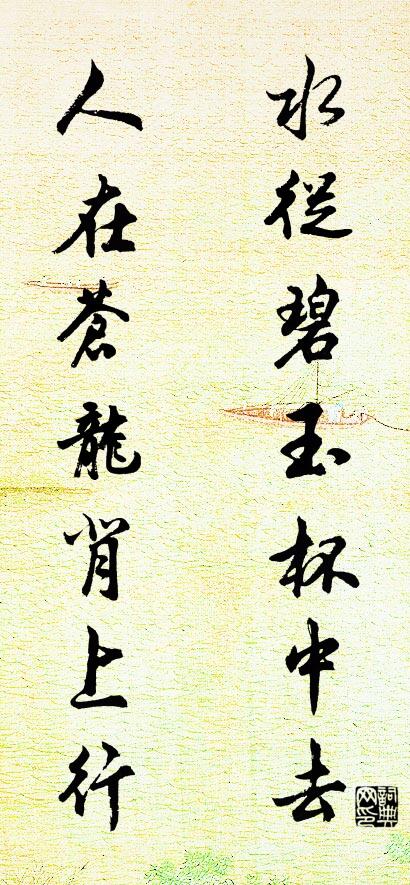 水從碧玉杯中去
人在蒼龍背上行
詞典
网